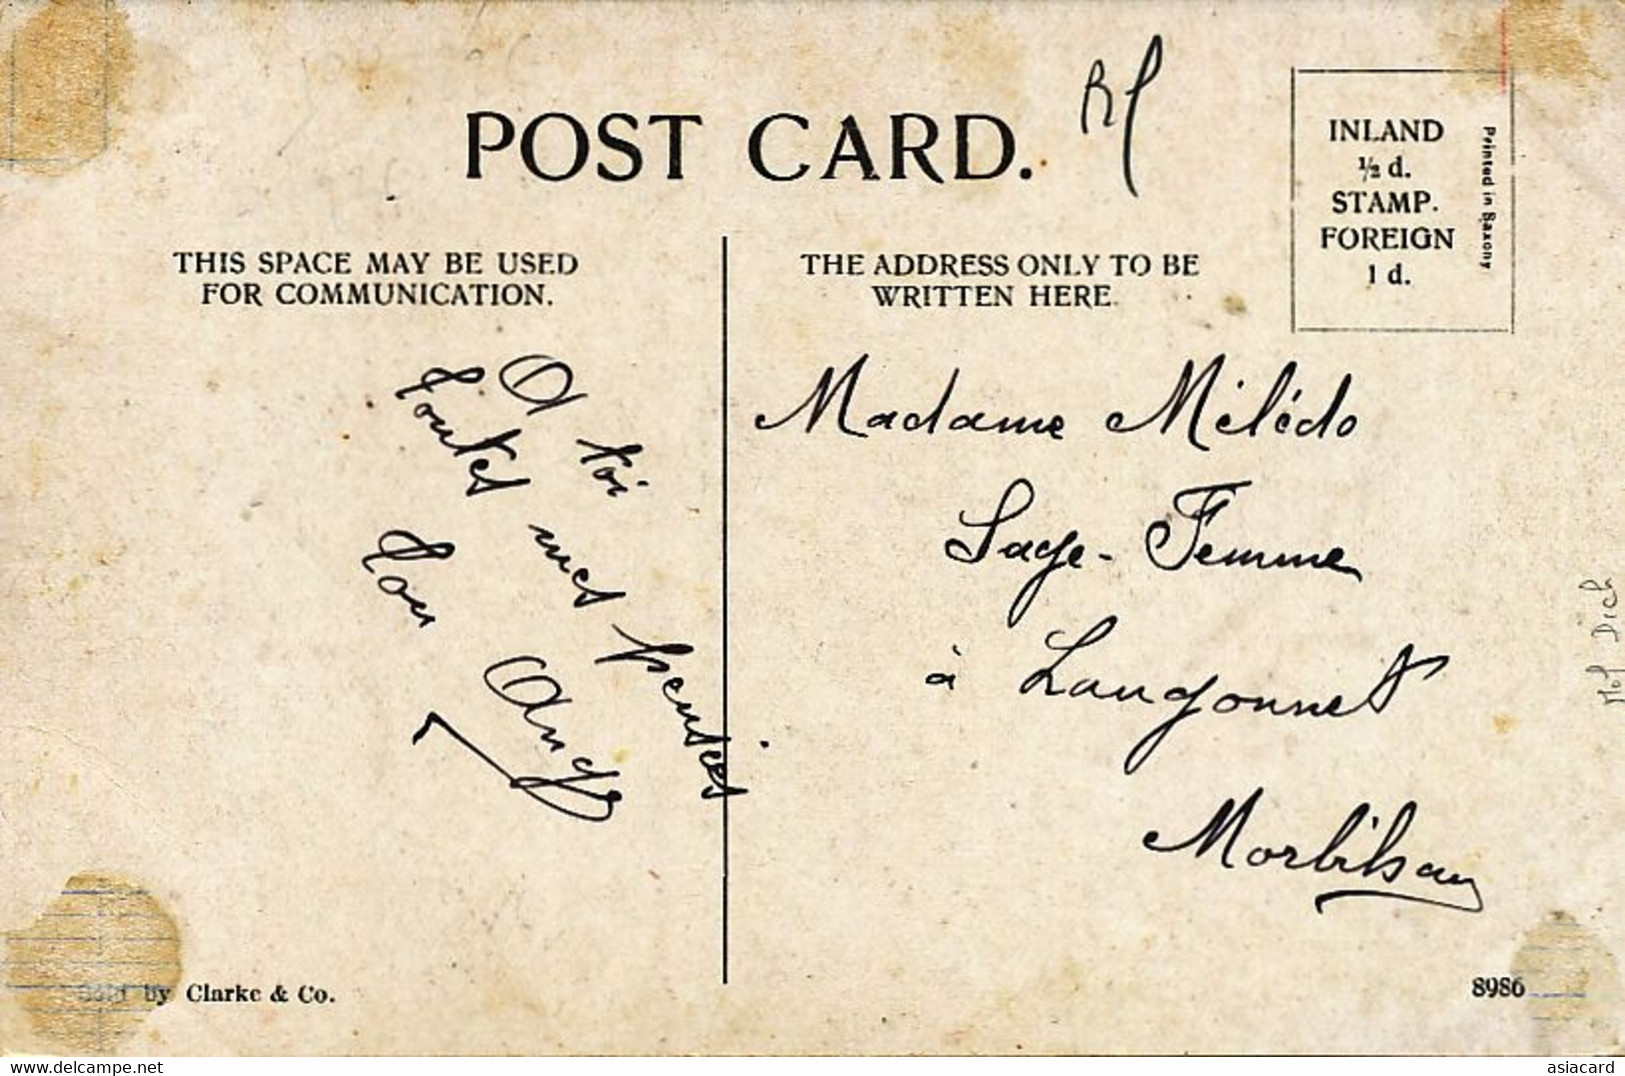 POST CARD.
THIS SPACE MAY BE USED
FOR COMMUNICATION.
THE ADDRESS ONLY TO BE
WRITTEN HERE.
INLAND
½ d.
STAMP.
FOREIGN
1 d.
Printed in Saxony
A toi
toutes mes pensées
Ton Ange
Madame Milédo
Sage-Femme
à Langonnet
Morbihan
Sold by Clarke & Co.
8986
asiacard